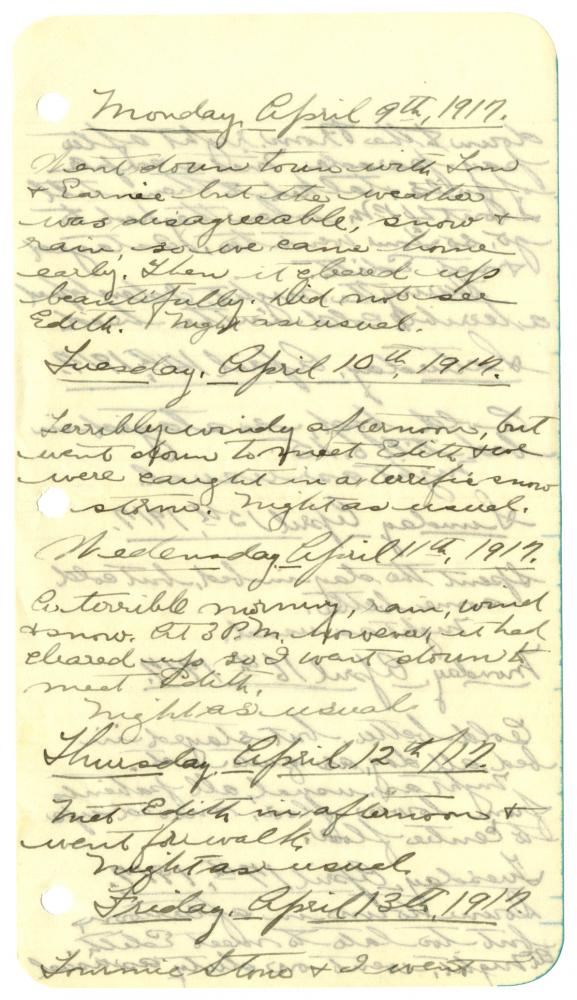 Monday, April 9th, 1917.
Went down town with Tom
& Earnie but the weather
was disagreeable, snow &
rain, so we came home
early. Then it cleared up
beautifully. Did not see
Edith. Night as usual.
Tuesday, April 10th, 1917.
Terribly windy afternoon, but
went down to meet Edith & we
were caught in a terrific snow
storm. Night as usual.
Wedensday April 11th, 1917.
A terrible morning, rain, wind
& snow. At 3 P.M. however, it had
cleared up so I went down to
meet Edith.
Night as usual.
Thursday, April 12th/17.
Met Edith in afternoon &
went for walk.
Night as usual.
Friday, April 13th, 1917
Tommie Stone & I went